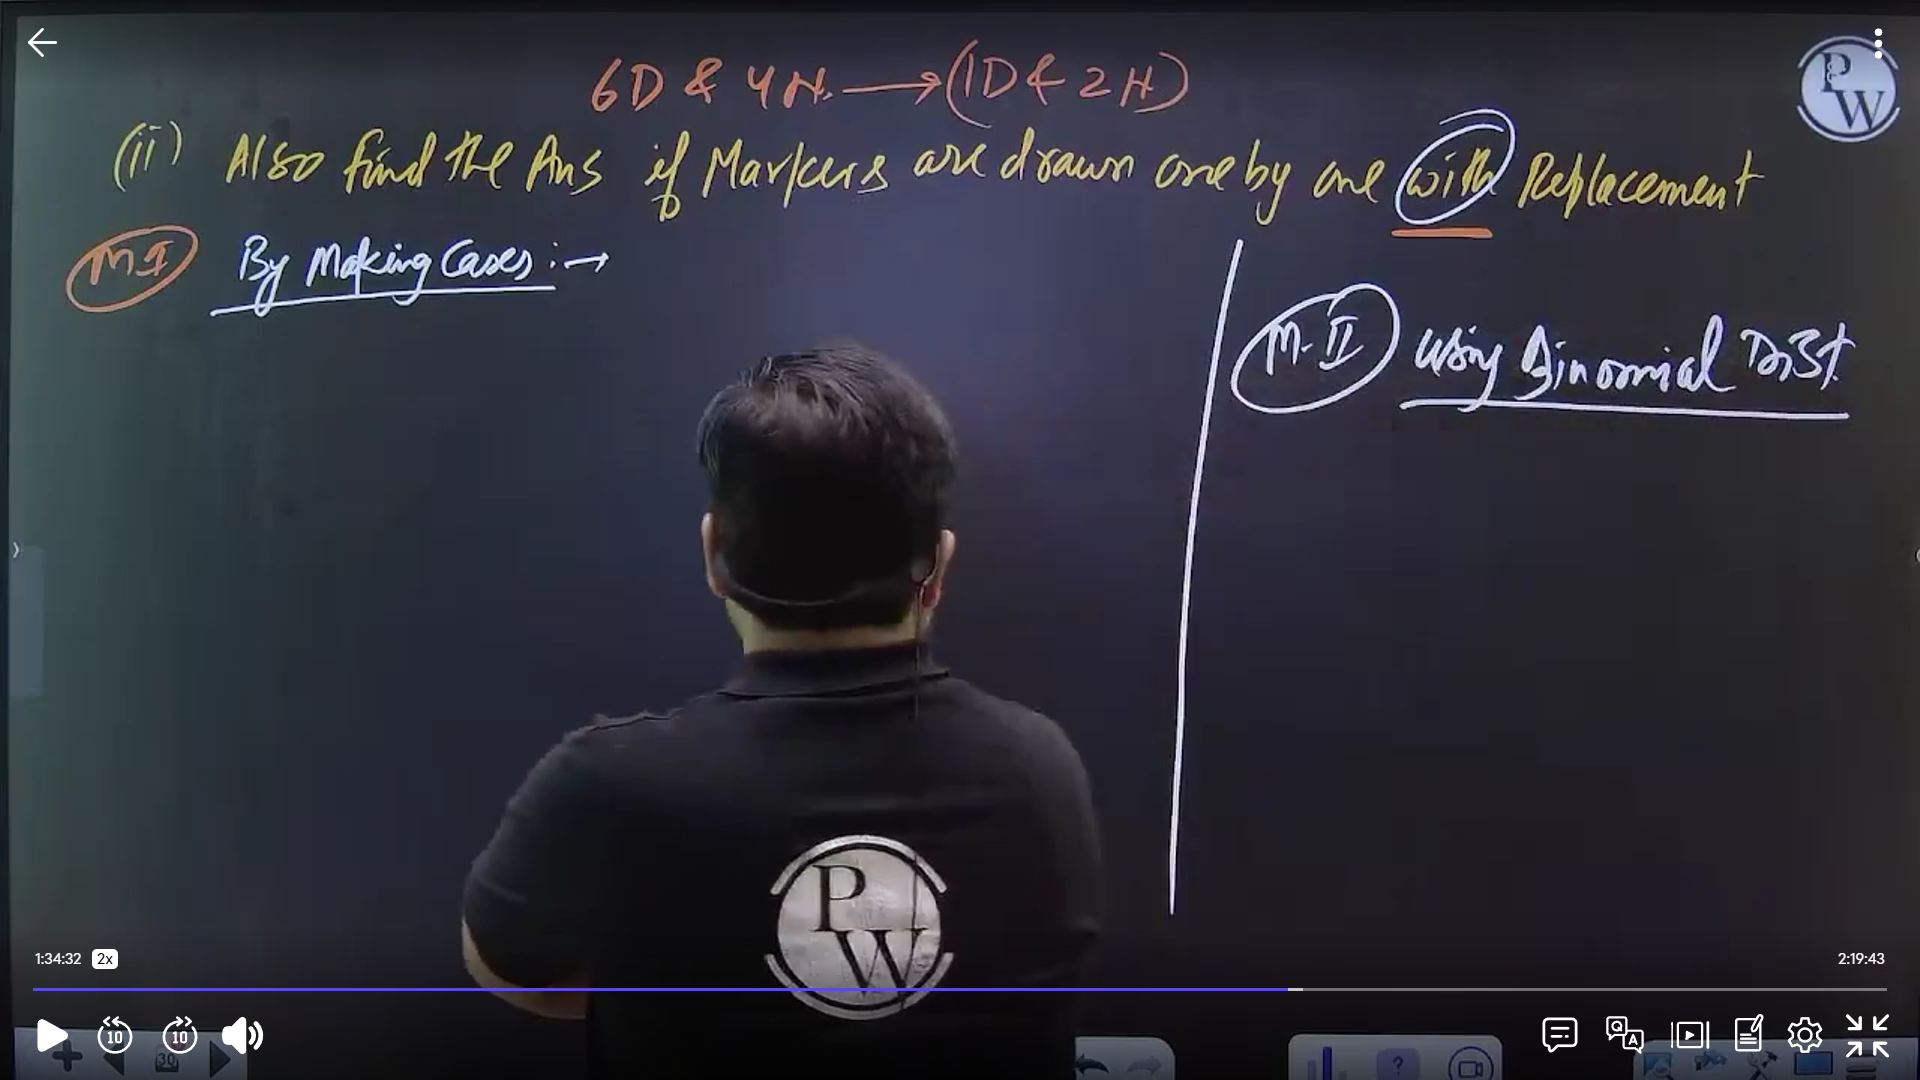 6D & 4H. → (1D & 2H)
(ii) Also find the Ans if Markers are drawn one by one with Replacement
M-I By Making Cases :→
M-II Using Binomial Dist.
P
W
P
W
1:34:32 2x
2:19:43
10 10
Q A
30
?